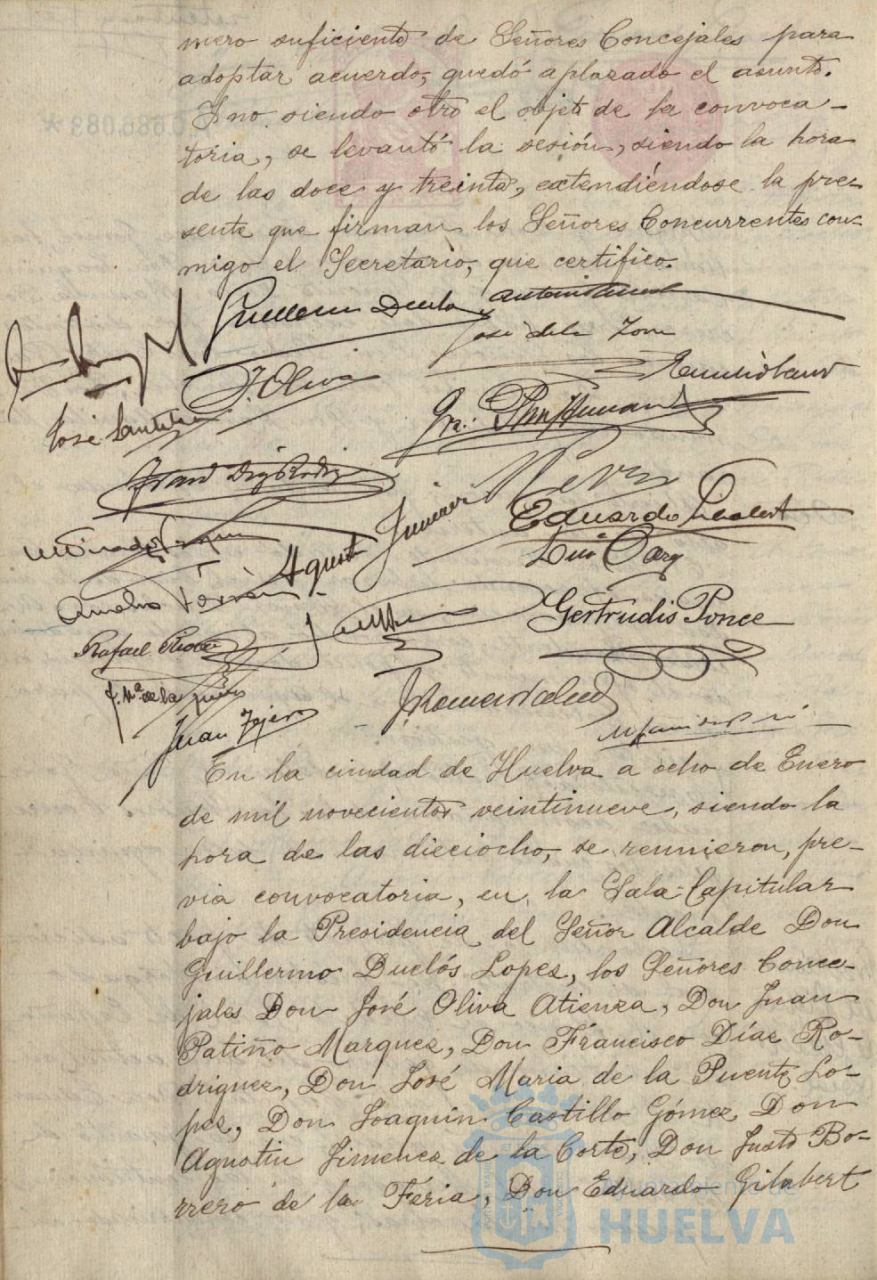 mero suficiente de Señores Concejales para
adoptar acuerdo, quedó aplazado el asunto.
Y no siendo otro el objeto de la convoca-
toria, se levantó la sesión, siendo la hora
de las doce y treinta, extendiéndose la pre-
sente que firman los Señores Concurrentes con-
migo el Secretario, que certifico.
Guillermo Duclos
José de la
J. Oliva
José
Agustin Jimenez
Eduardo Gilabert
Amelia
Gertrudis Ponce
Rafael
J. Mª de la Puente
Juan Tejero
En la ciudad de Huelva a ocho de Enero
de mil novecientos veintinueve, siendo la
hora de las dieciocho, se reunieron, pre-
via convocatoria, en la Sala Capitular
bajo la Presidencia del Señor Alcalde Don
Guillermo Duclós Lopez, los Señores Conce-
jales Don José Oliva Atienza, Don Juan
Patiño Marquez, Don Francisco Díaz Ro-
driguez, Don José Maria de la Puente Lo-
pez, Don Joaquín Castillo Gómez, Don
Agustin Jimenez de la Corte, Don Justo Bo-
rrero de la Feria, Don Eduardo Gilabert
HUELVA